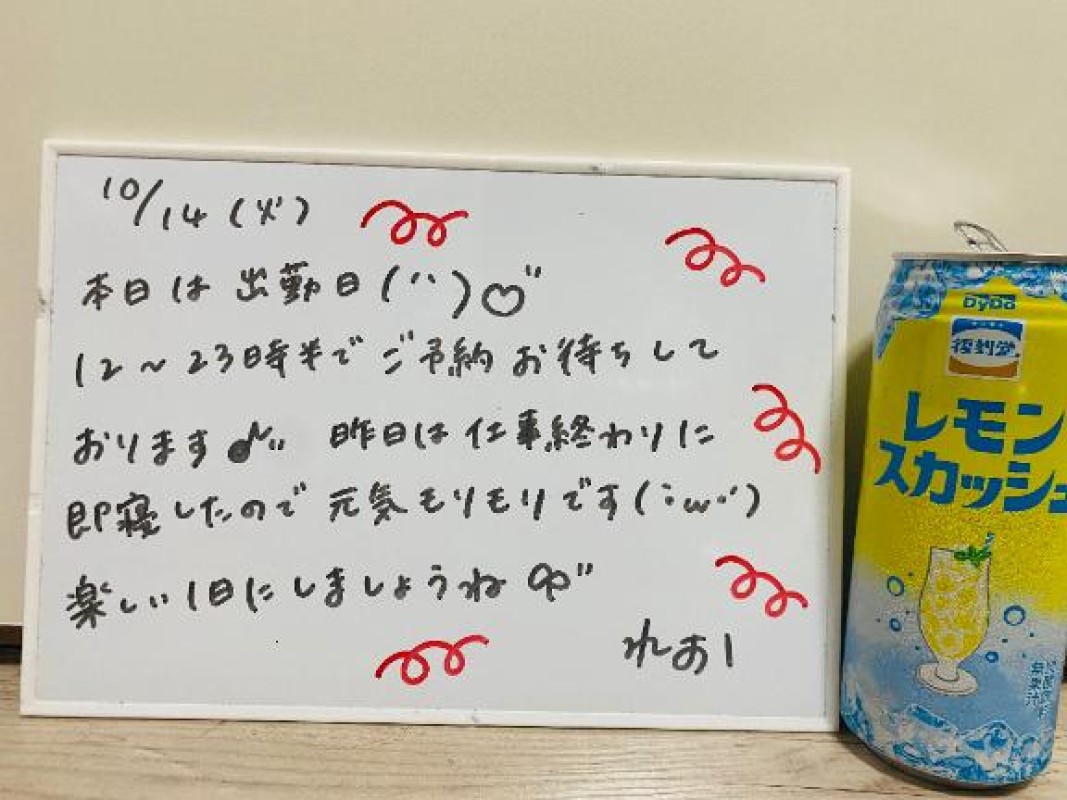 10/14 (火)
本日は 出勤日(¨)♡"
12~23時半で ご予約 お待ちして
おります♪" 昨日は 仕事終わりに
即寝したので 元気モリモリです(˙ω˙)
楽しい1日にしましょうね ∞"
れあー
DyDo
復刻堂
レモン
スカッシュ
無果汁